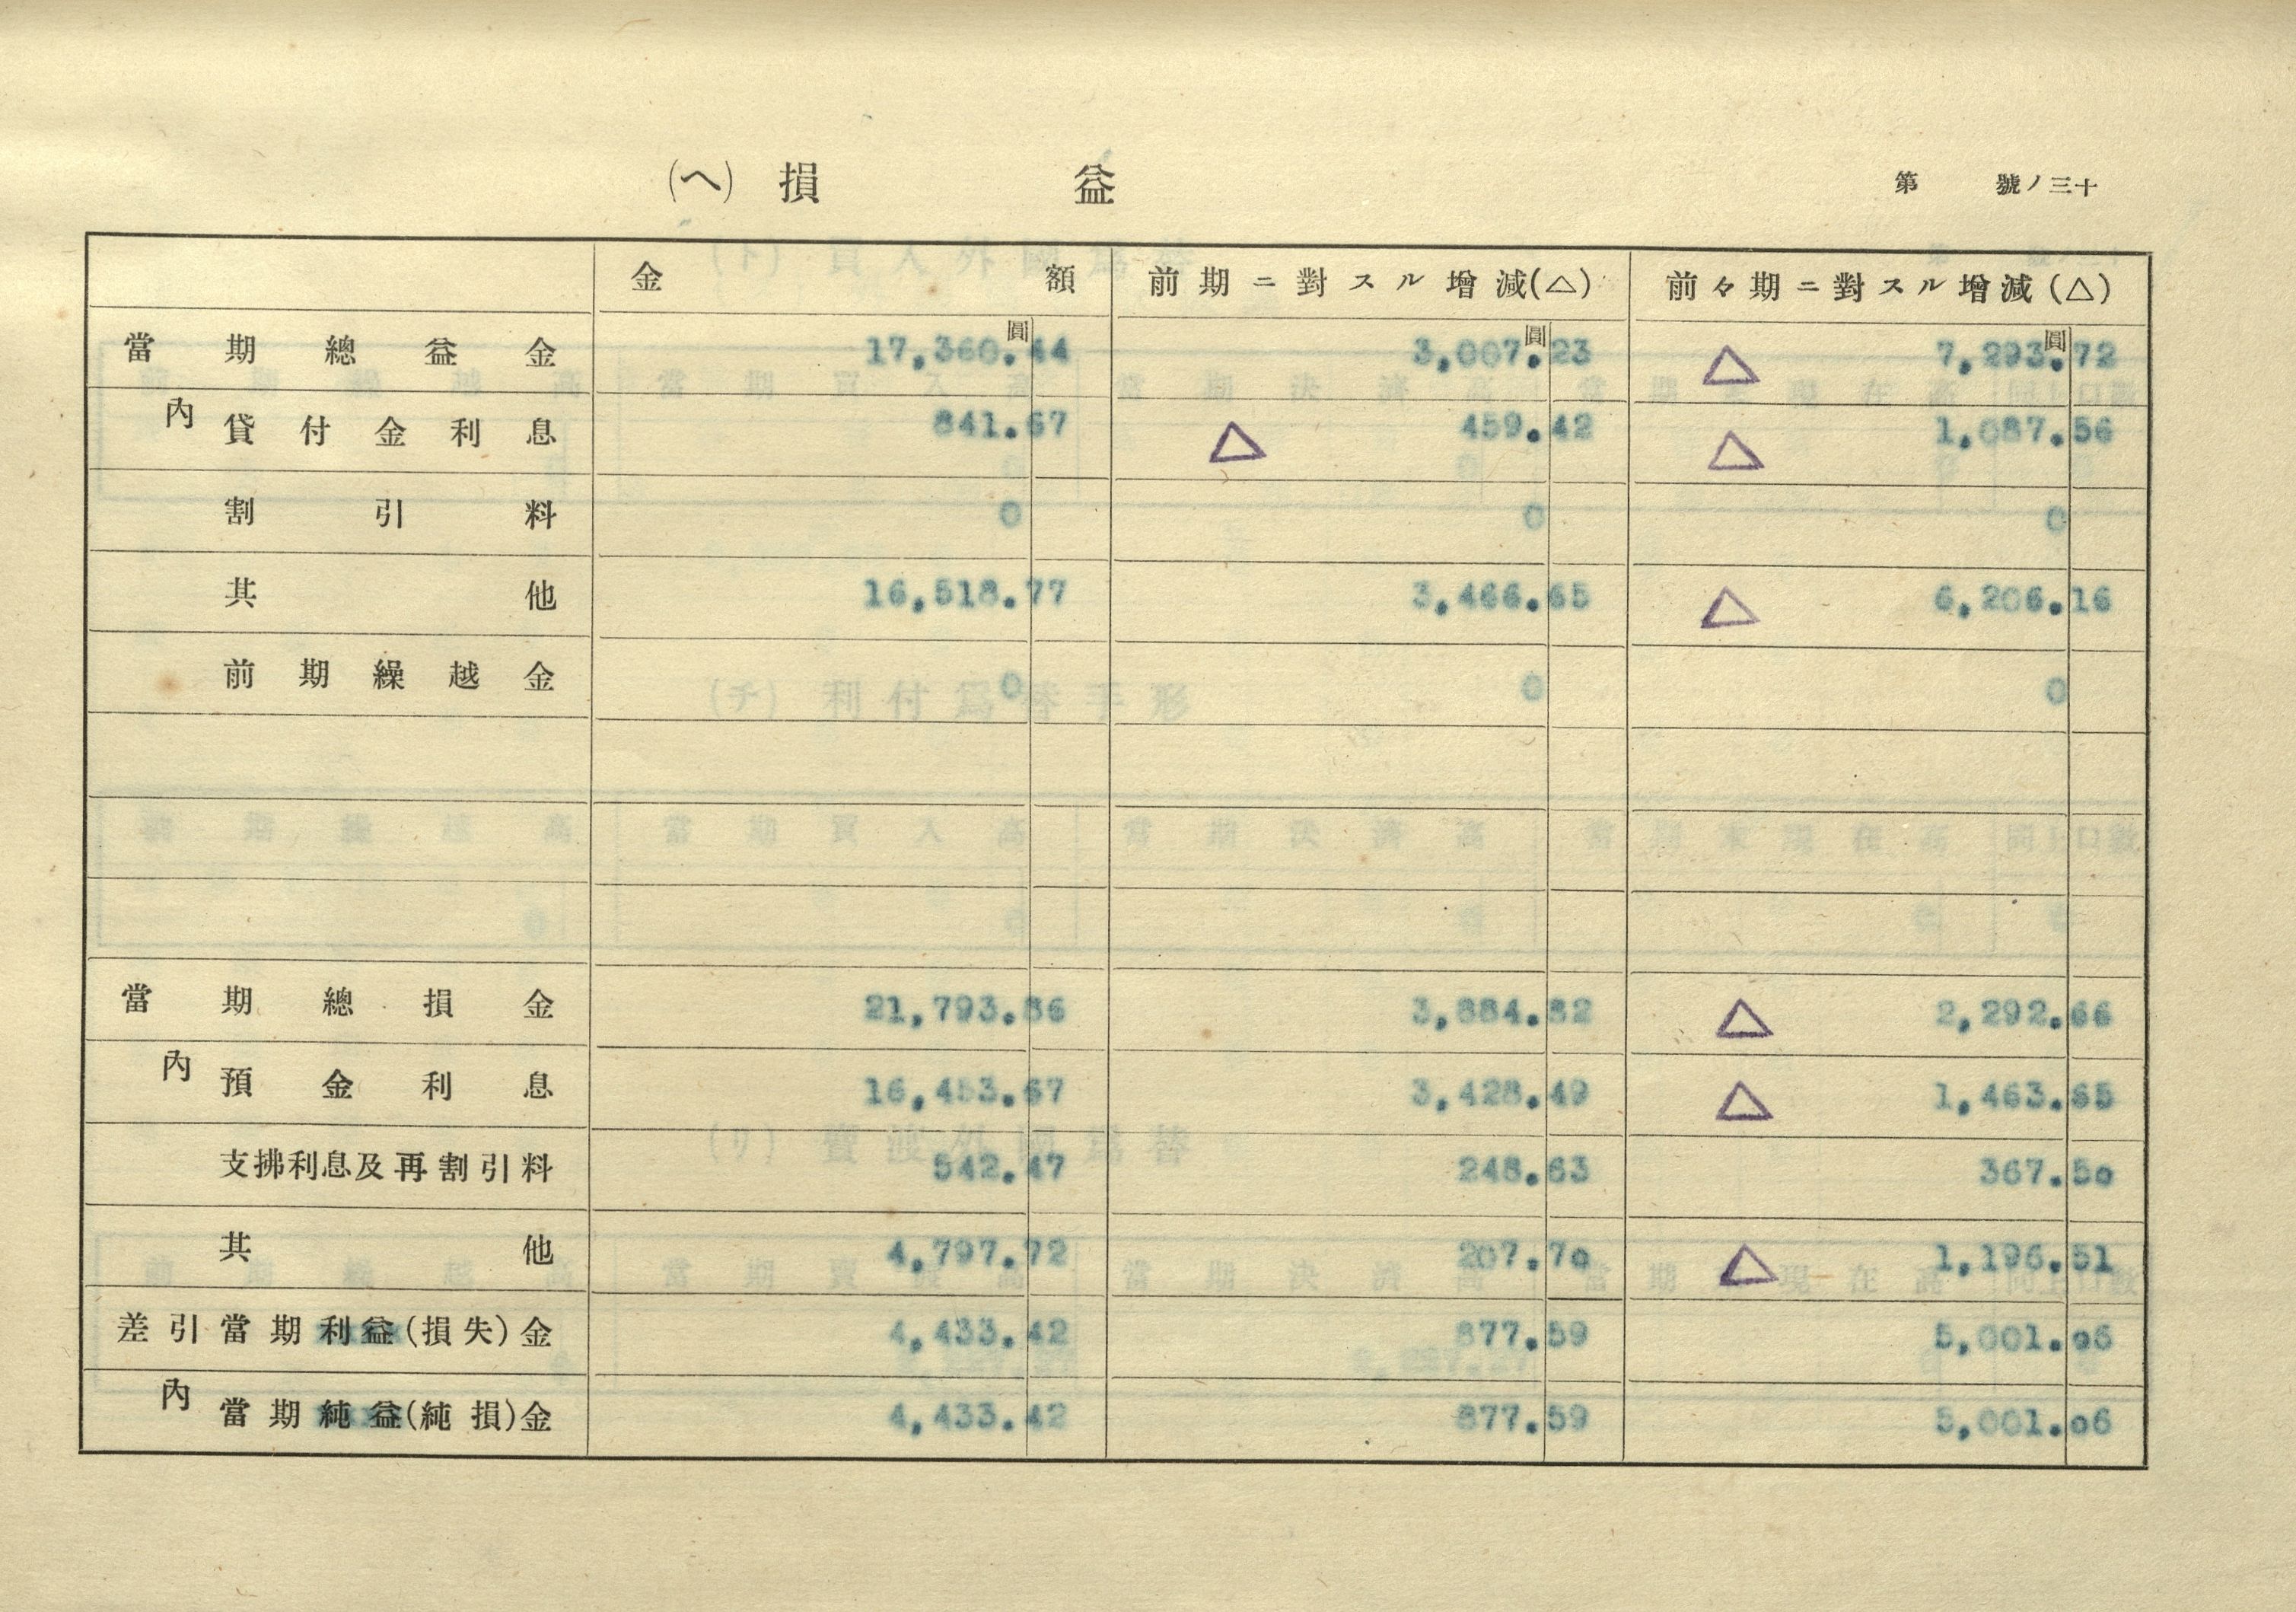 (ヘ) 損益 第 號ノ三十
金額 前期ニ對スル增減(△) 前々期ニ對スル增減(△)
圓 圓 圓
當期總益金 17,360.44 3,007.23 △ 7,293.72
內 貸付金利息 841.67 △ 459.42 △ 1,087.56
割引料 0 0 0
其他 16,518.77 3,466.65 △ 6,206.16
前期繰越金 0 0 0
當期總損金 21,793.86 3,884.82 △ 2,292.66
內 預金利息 16,453.67 3,428.49 △ 1,463.65
支拂利息及再割引料 542.47 248.63 367.50
其他 4,797.72 207.70 △ 1,196.51
差引當期利益(損失)金 4,433.42 877.59 5,001.06
內 當期純益(純損)金 4,433.42 877.59 5,001.06